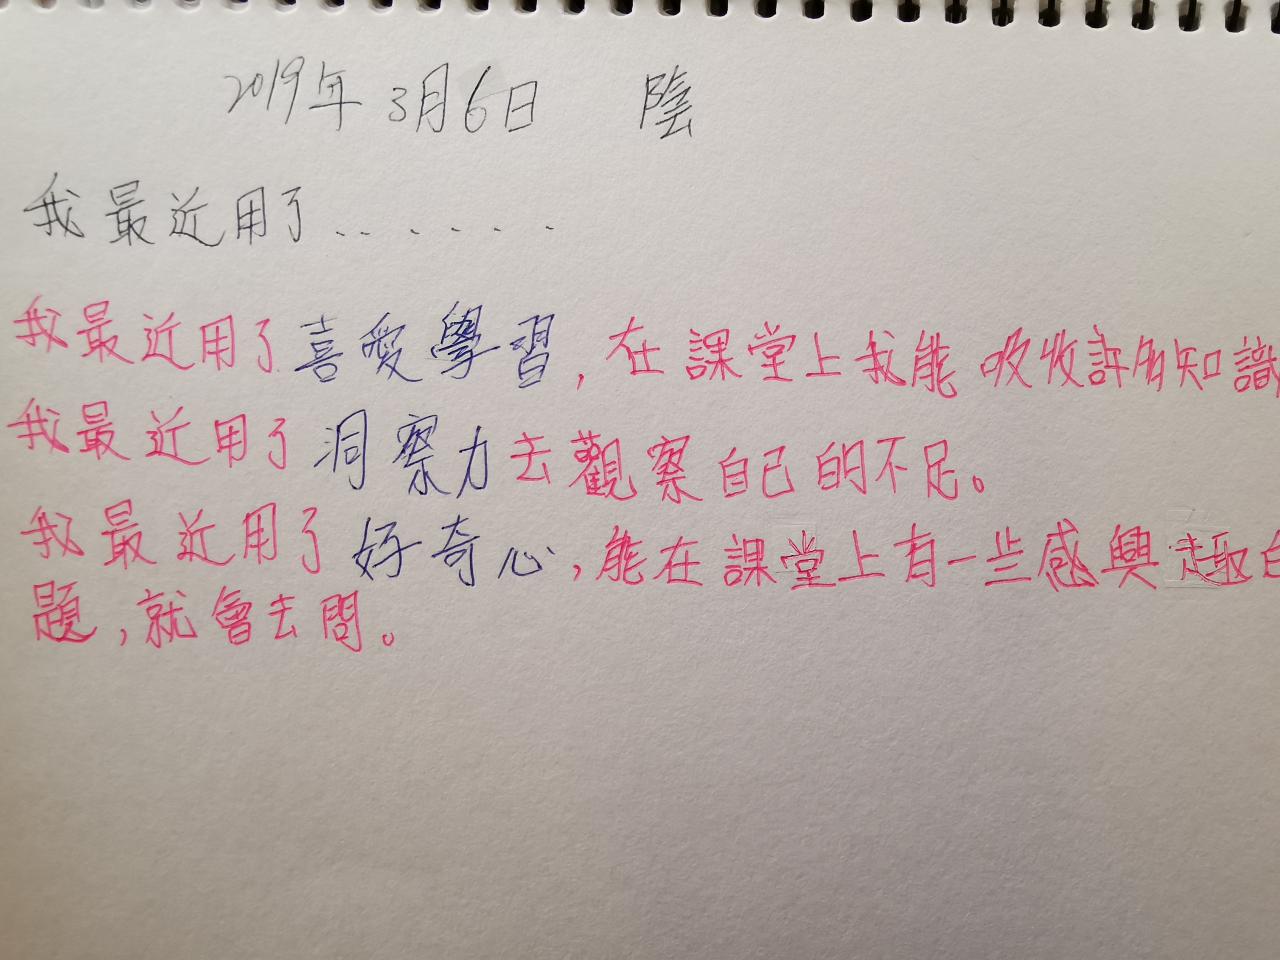 2019年3月6日 陰
我最近用了.......
我最近用了喜愛學習,在課堂上我能吸收許多知識
我最近用了洞察力去觀察自己的不足。
我最近用了好奇心,能在課堂上有一些感興趣
題,就會去問。